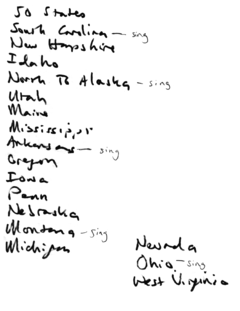 50 States
South Carolina - sing
New Hampshire
Idaho
North To Alaska - sing
Utah
Maine
Mississippi
Arkansas - sing
Oregon
Iowa
Penn
Nebraska
Montana - sing
Michigan
Nevada
Ohio - sing
West Virginia